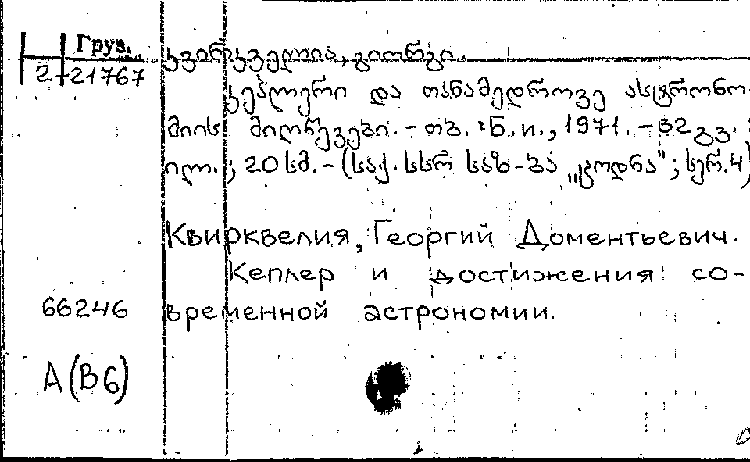 Груз.
2-21767
კვირკველია, გიორგი.
კეპლერი და თანამედროვე ასტრონო-
მიის მიღწევები. – თბ. : წ. ი., 1971. – 32 გვ. :
ილ. ; 20 სმ. – (საქ. სსრ საზ-ბა „ცოდნა“ ; სერ. 4)
Квирквелия, Георгий Доментьевич.
Кеплер и достижения со-
66246 временной астрономии.
А(В6)